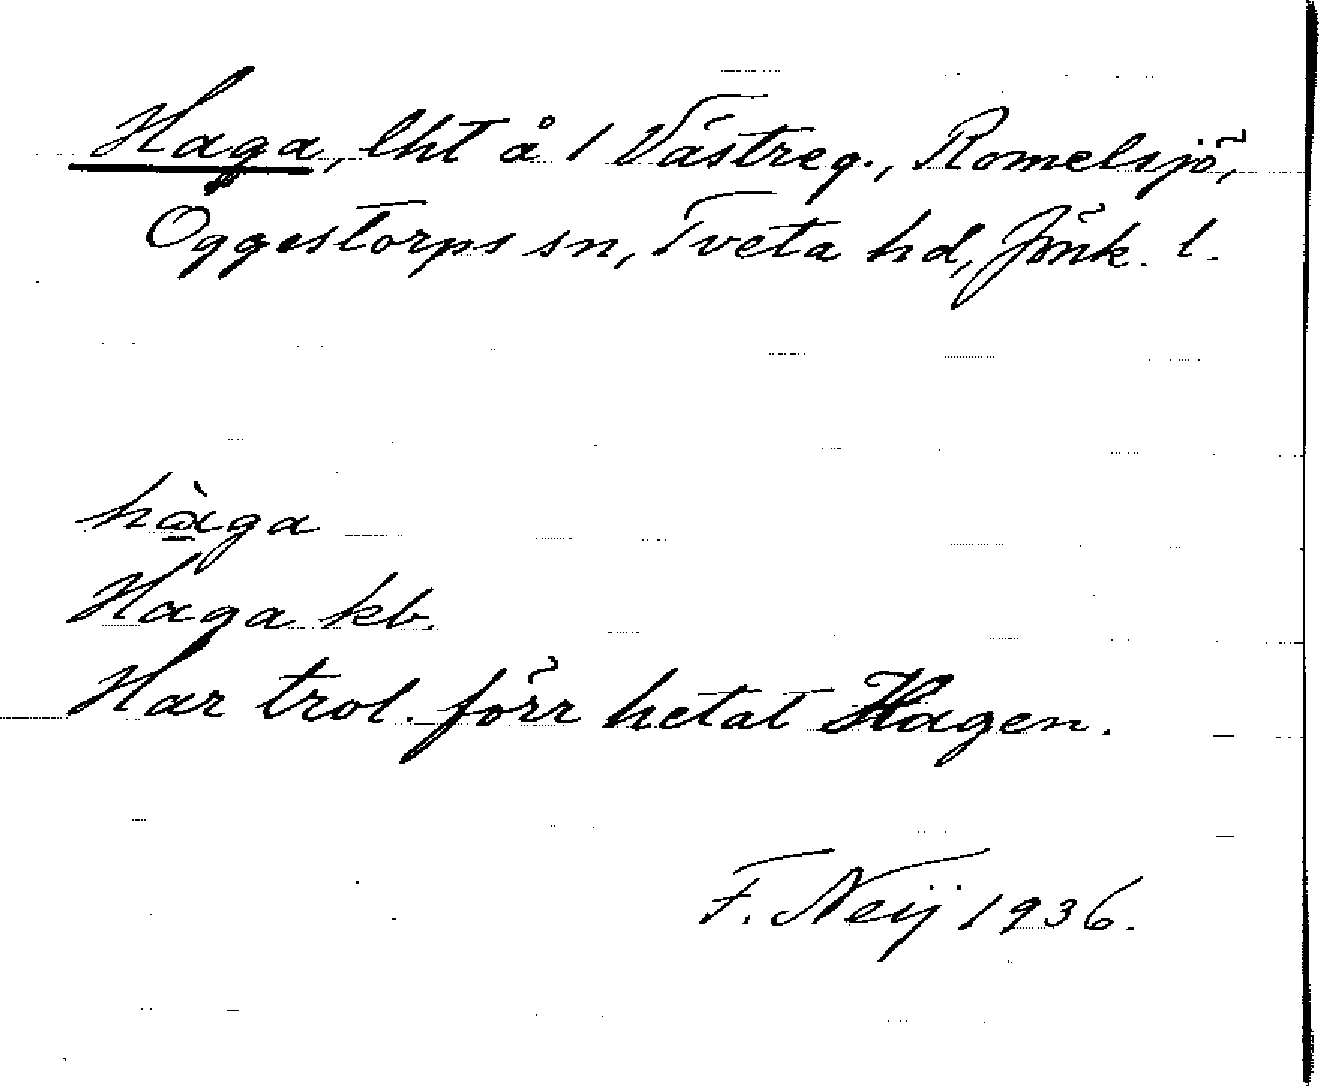 Haga, lht å 1 Västreg., Romelsjö,
Oggestorps sn, Tveta hd, Jönk. l.
hàga
Haga kb.
Har trol. förr hetat Hagen.
F. Neij 1936.